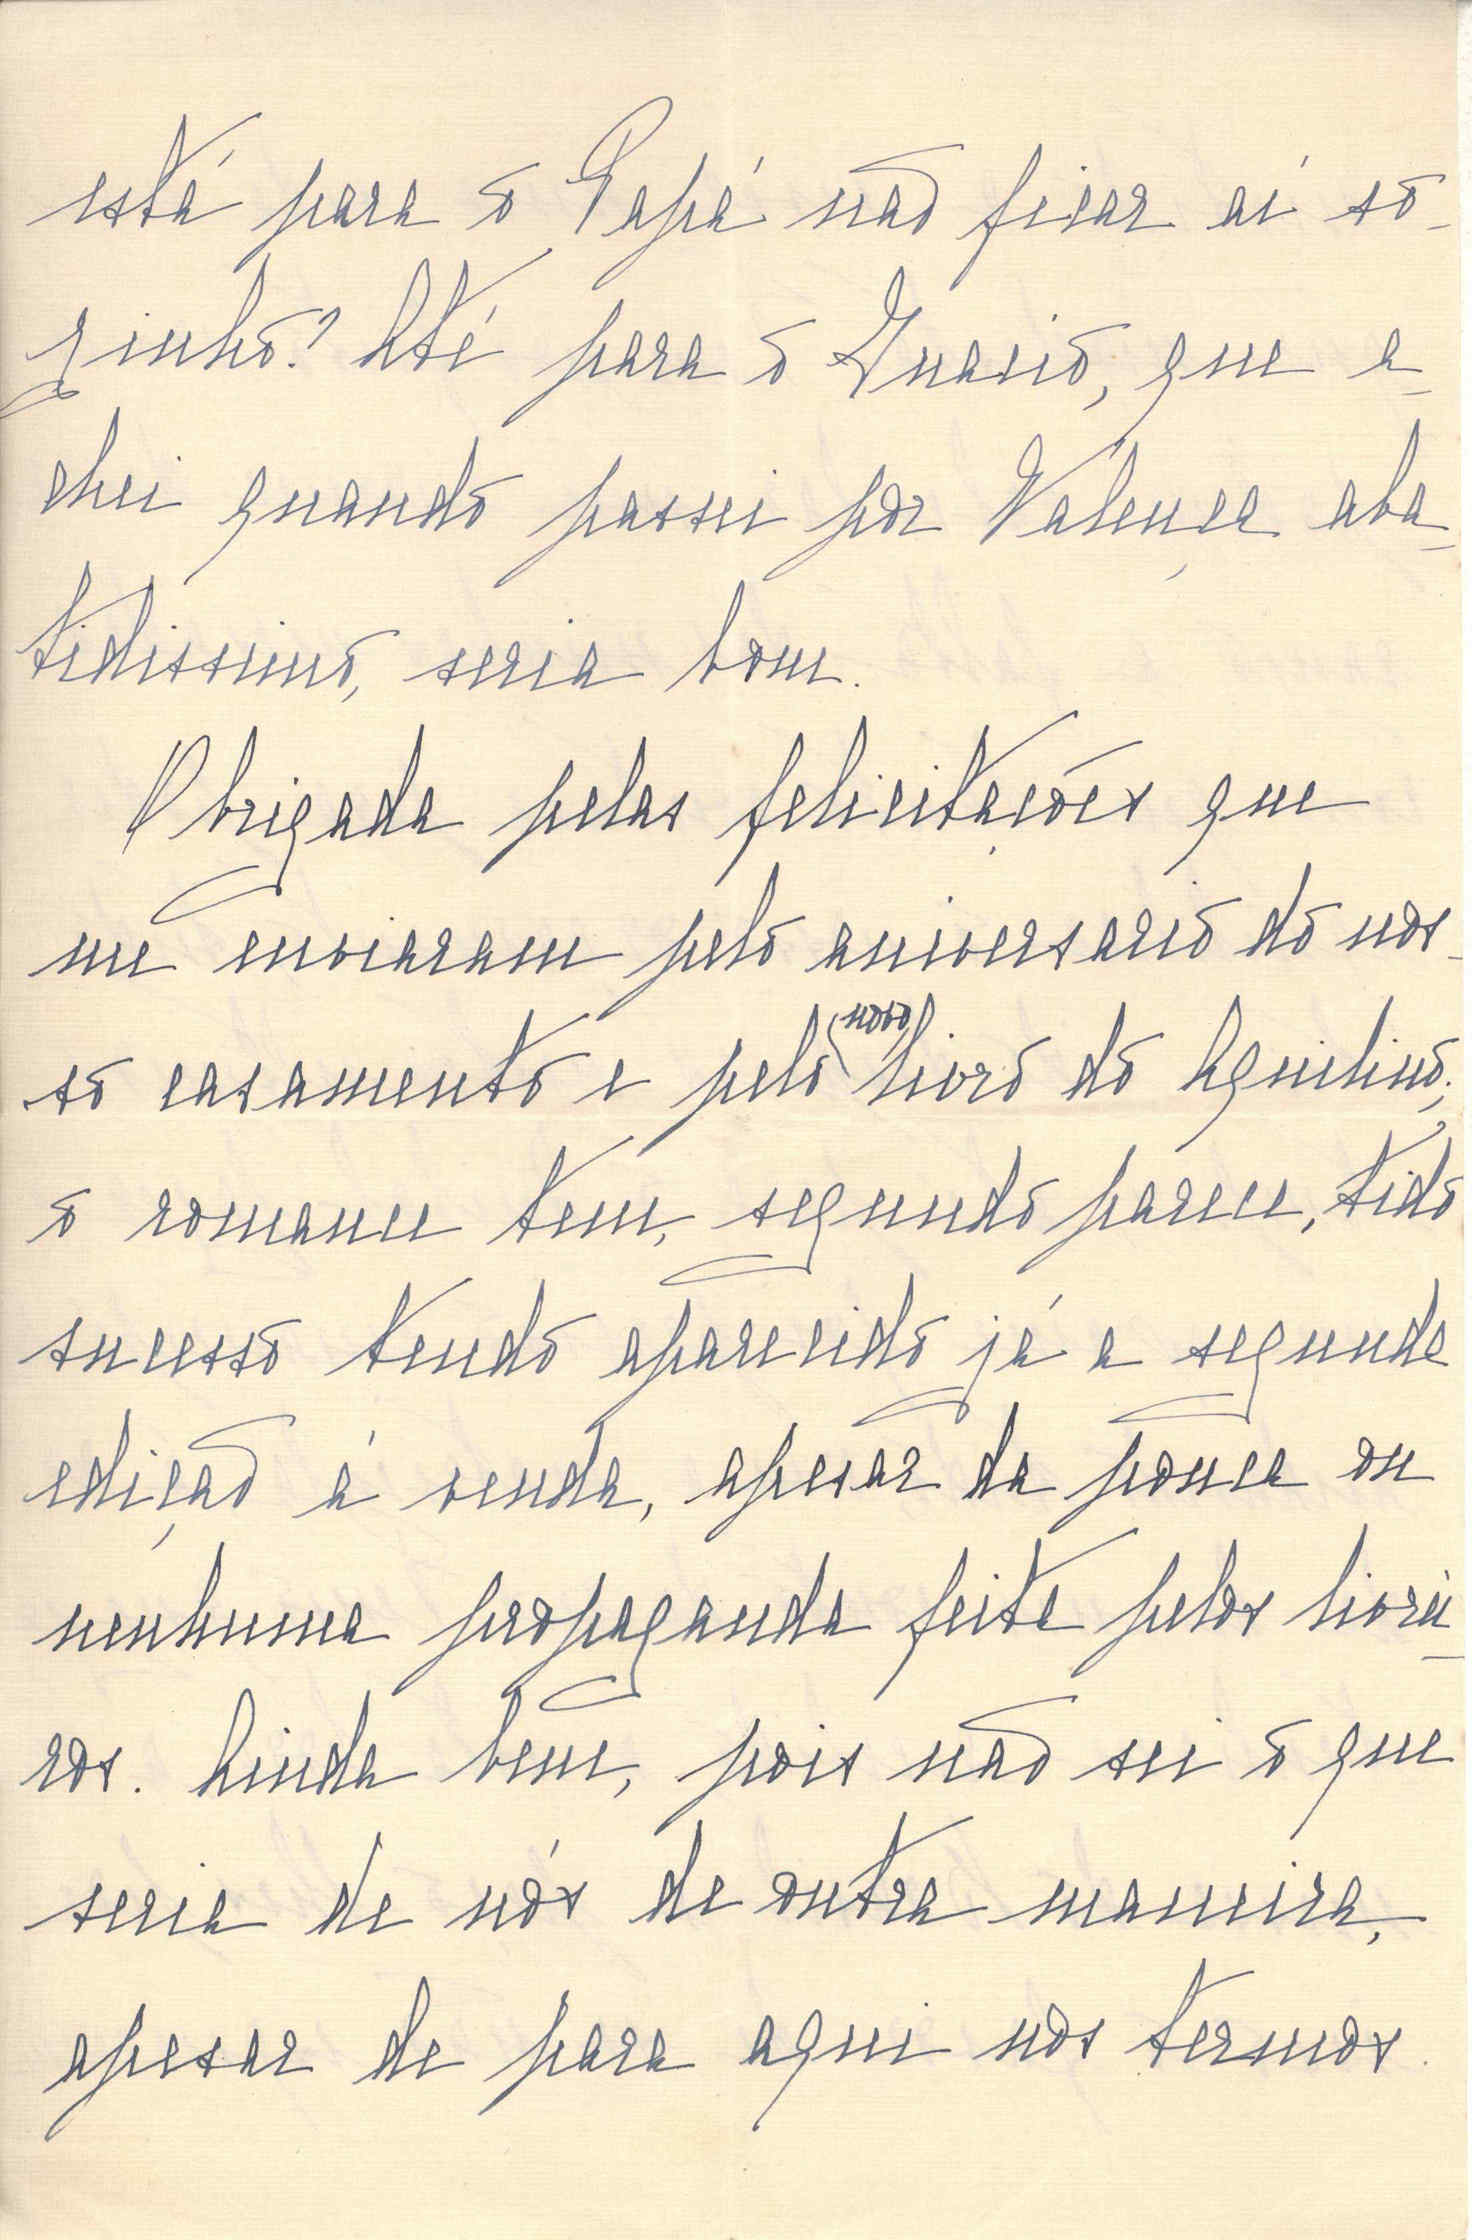 está para o Papá não ficar aí so-
zinho? Até para o Inacio, que a-
chei quando passei por Valença aba-
tidissimo, seria bom.
Obrigada pelas felicitações que
me enviaram pelo aniversario do nos-
so casamento e pelo (novo) livro do Aquilino;
o romance tem, segundo parece, tido
sucesso tendo aparecido já a segunda
edição á venda, apesar da pouca ou
nenhuma propaganda feita pelos livrei-
ros. Ainda bem, pois não sei o que
seria de nós de outra maneira,
apesar de para aqui nos termos